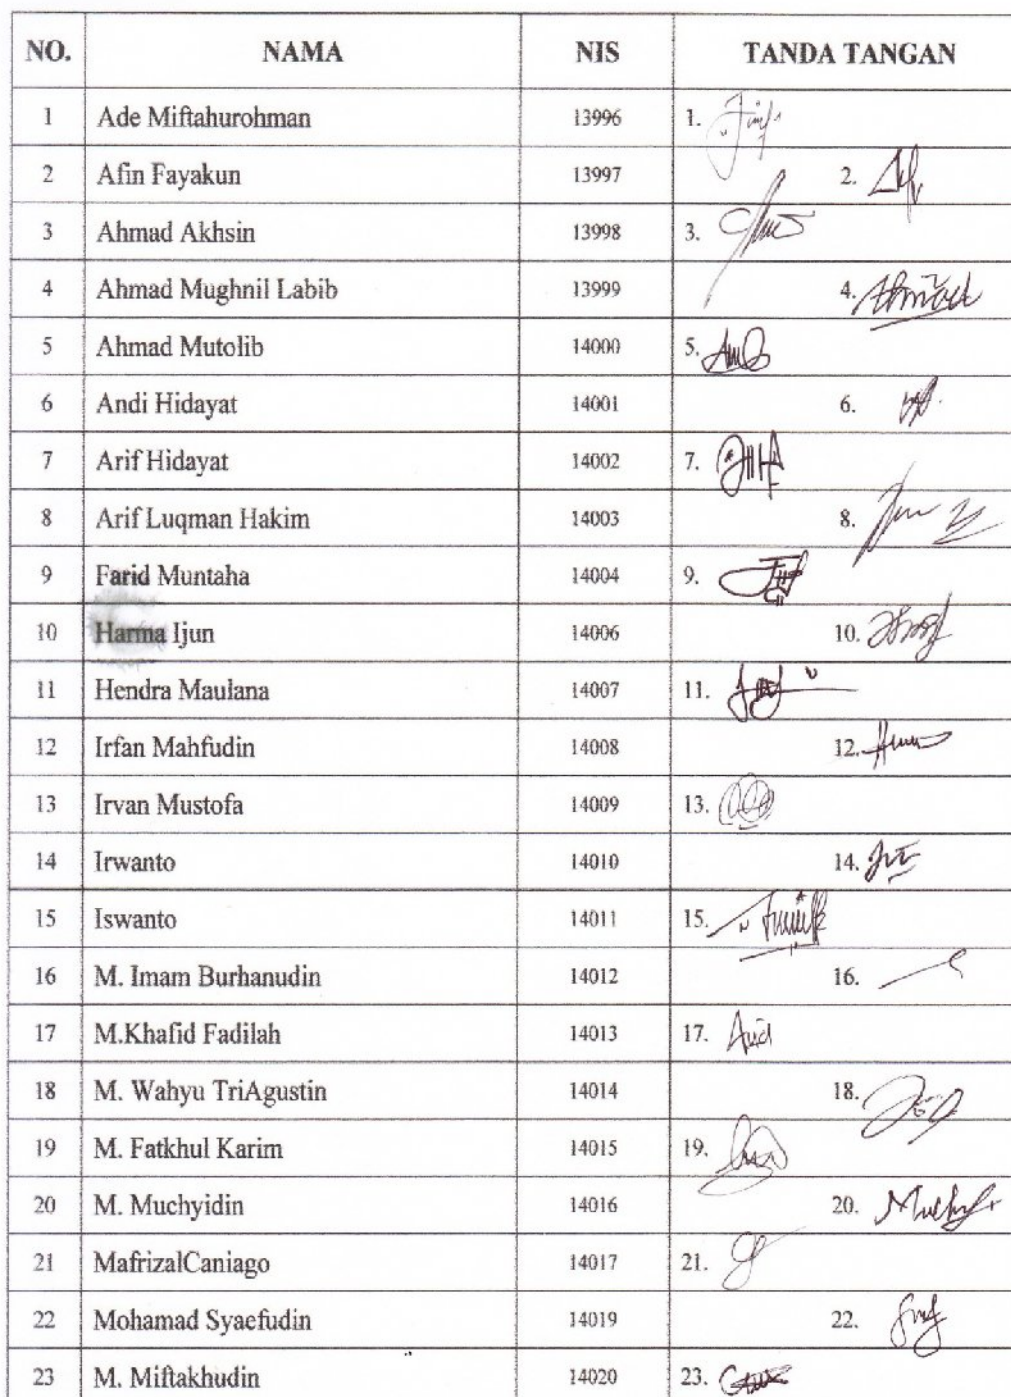 NO. NAMA NIS TANDA TANGAN
1 Ade Miftahurohman 13996 1.
2 Afin Fayakun 13997 2.
3 Ahmad Akhsin 13998 3.
4 Ahmad Mughnil Labib 13999 4.
5 Ahmad Mutolib 14000 5.
6 Andi Hidayat 14001 6.
7 Arif Hidayat 14002 7.
8 Arif Luqman Hakim 14003 8.
9 Farid Muntaha 14004 9.
10 Harma Ijun 14006 10.
11 Hendra Maulana 14007 11.
12 Irfan Mahfudin 14008 12.
13 Irvan Mustofa 14009 13.
14 Irwanto 14010 14.
15 Iswanto 14011 15.
16 M. Imam Burhanudin 14012 16.
17 M.Khafid Fadilah 14013 17.
18 M. Wahyu TriAgustin 14014 18.
19 M. Fatkhul Karim 14015 19.
20 M. Muchyidin 14016 20.
21 MafrizalCaniago 14017 21.
22 Mohamad Syaefudin 14019 22.
23 M. Miftakhudin 14020 23.